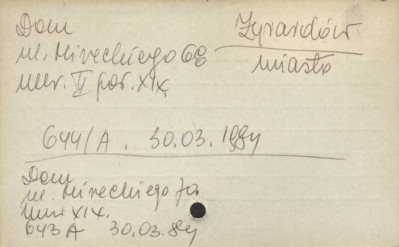 Dom
ul. Mireckiego 68
mur. II poł. XIX
Żyrardów
miasto
644/A. 30.03.1984
Dom
ul. Mireckiego 70
mur XIX.
643 A 30.03.84